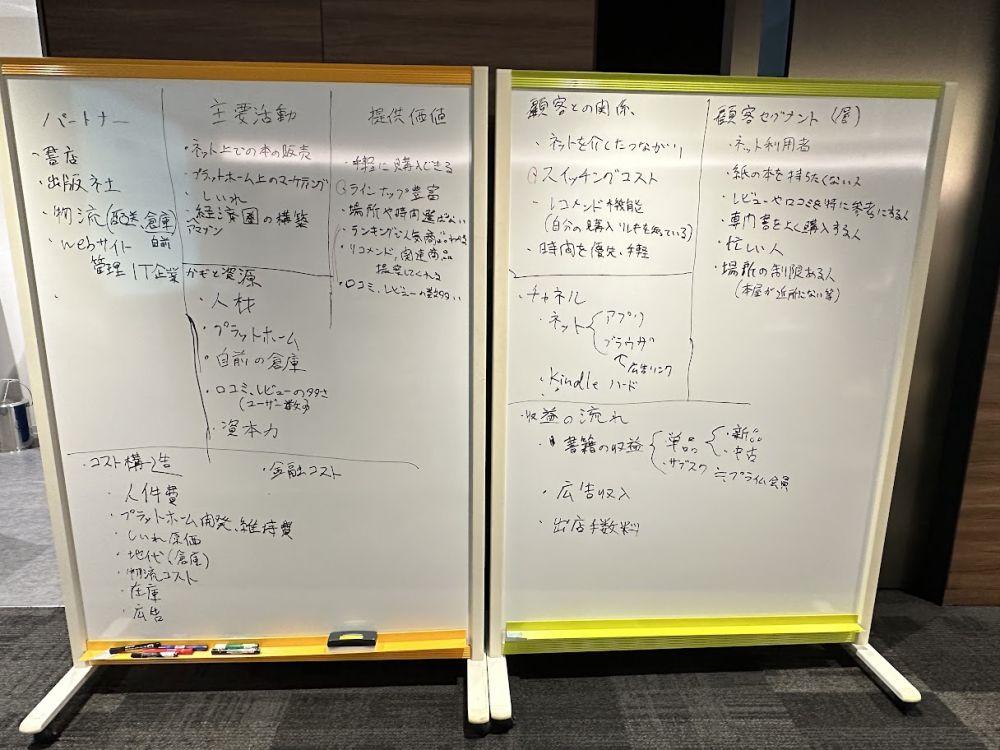 パートナー
・書店
・出版社
・物流(配送,倉庫)
自前
・webサイト
管理 IT企業
主要活動
・ネット上での本の販売
・プラットホーム上のマーケティング
・しいれ
・経済圏の構築
アマゾン
かぎと資源
・人材
・プラットホーム
・自前の倉庫
・口コミ、レビューの多さ
(ユーザー数の)
・資本力
提供価値
・手軽に購入できる
ラインナップ豊富
・場所や時間選ばない
・ランキング、人気商品がわかる
・リコメンド,関連商品
提案してくれる
・口コミ、レビューの数多い
コスト構造
・金融コスト
・人件費
・プラットホーム開発、維持費
・しいれ原価
・地代(倉庫)
・物流コスト
・在庫
・広告
顧客との関係
・ネットを介したつながり
スイッチングコスト
・レコメンド機能
(自分の購入リレキを知っている)
・時間を優先,手軽
・チャネル
・ネット
・アプリ
・ブラウザ
広告リンク
・Kindle ハード
顧客セグメント (層)
・ネット利用者
・紙の本を持ちたくない人
・レビューや口コミを特に参考にする人
・専門書をよく購入する人
・忙しい人
・場所の制限ある人
(本屋が近所にない等)
・収益の流れ
・書籍の収益
・単品
・新品
・中古
・サブスク ≒プライム会員
・広告収入
・出店手数料